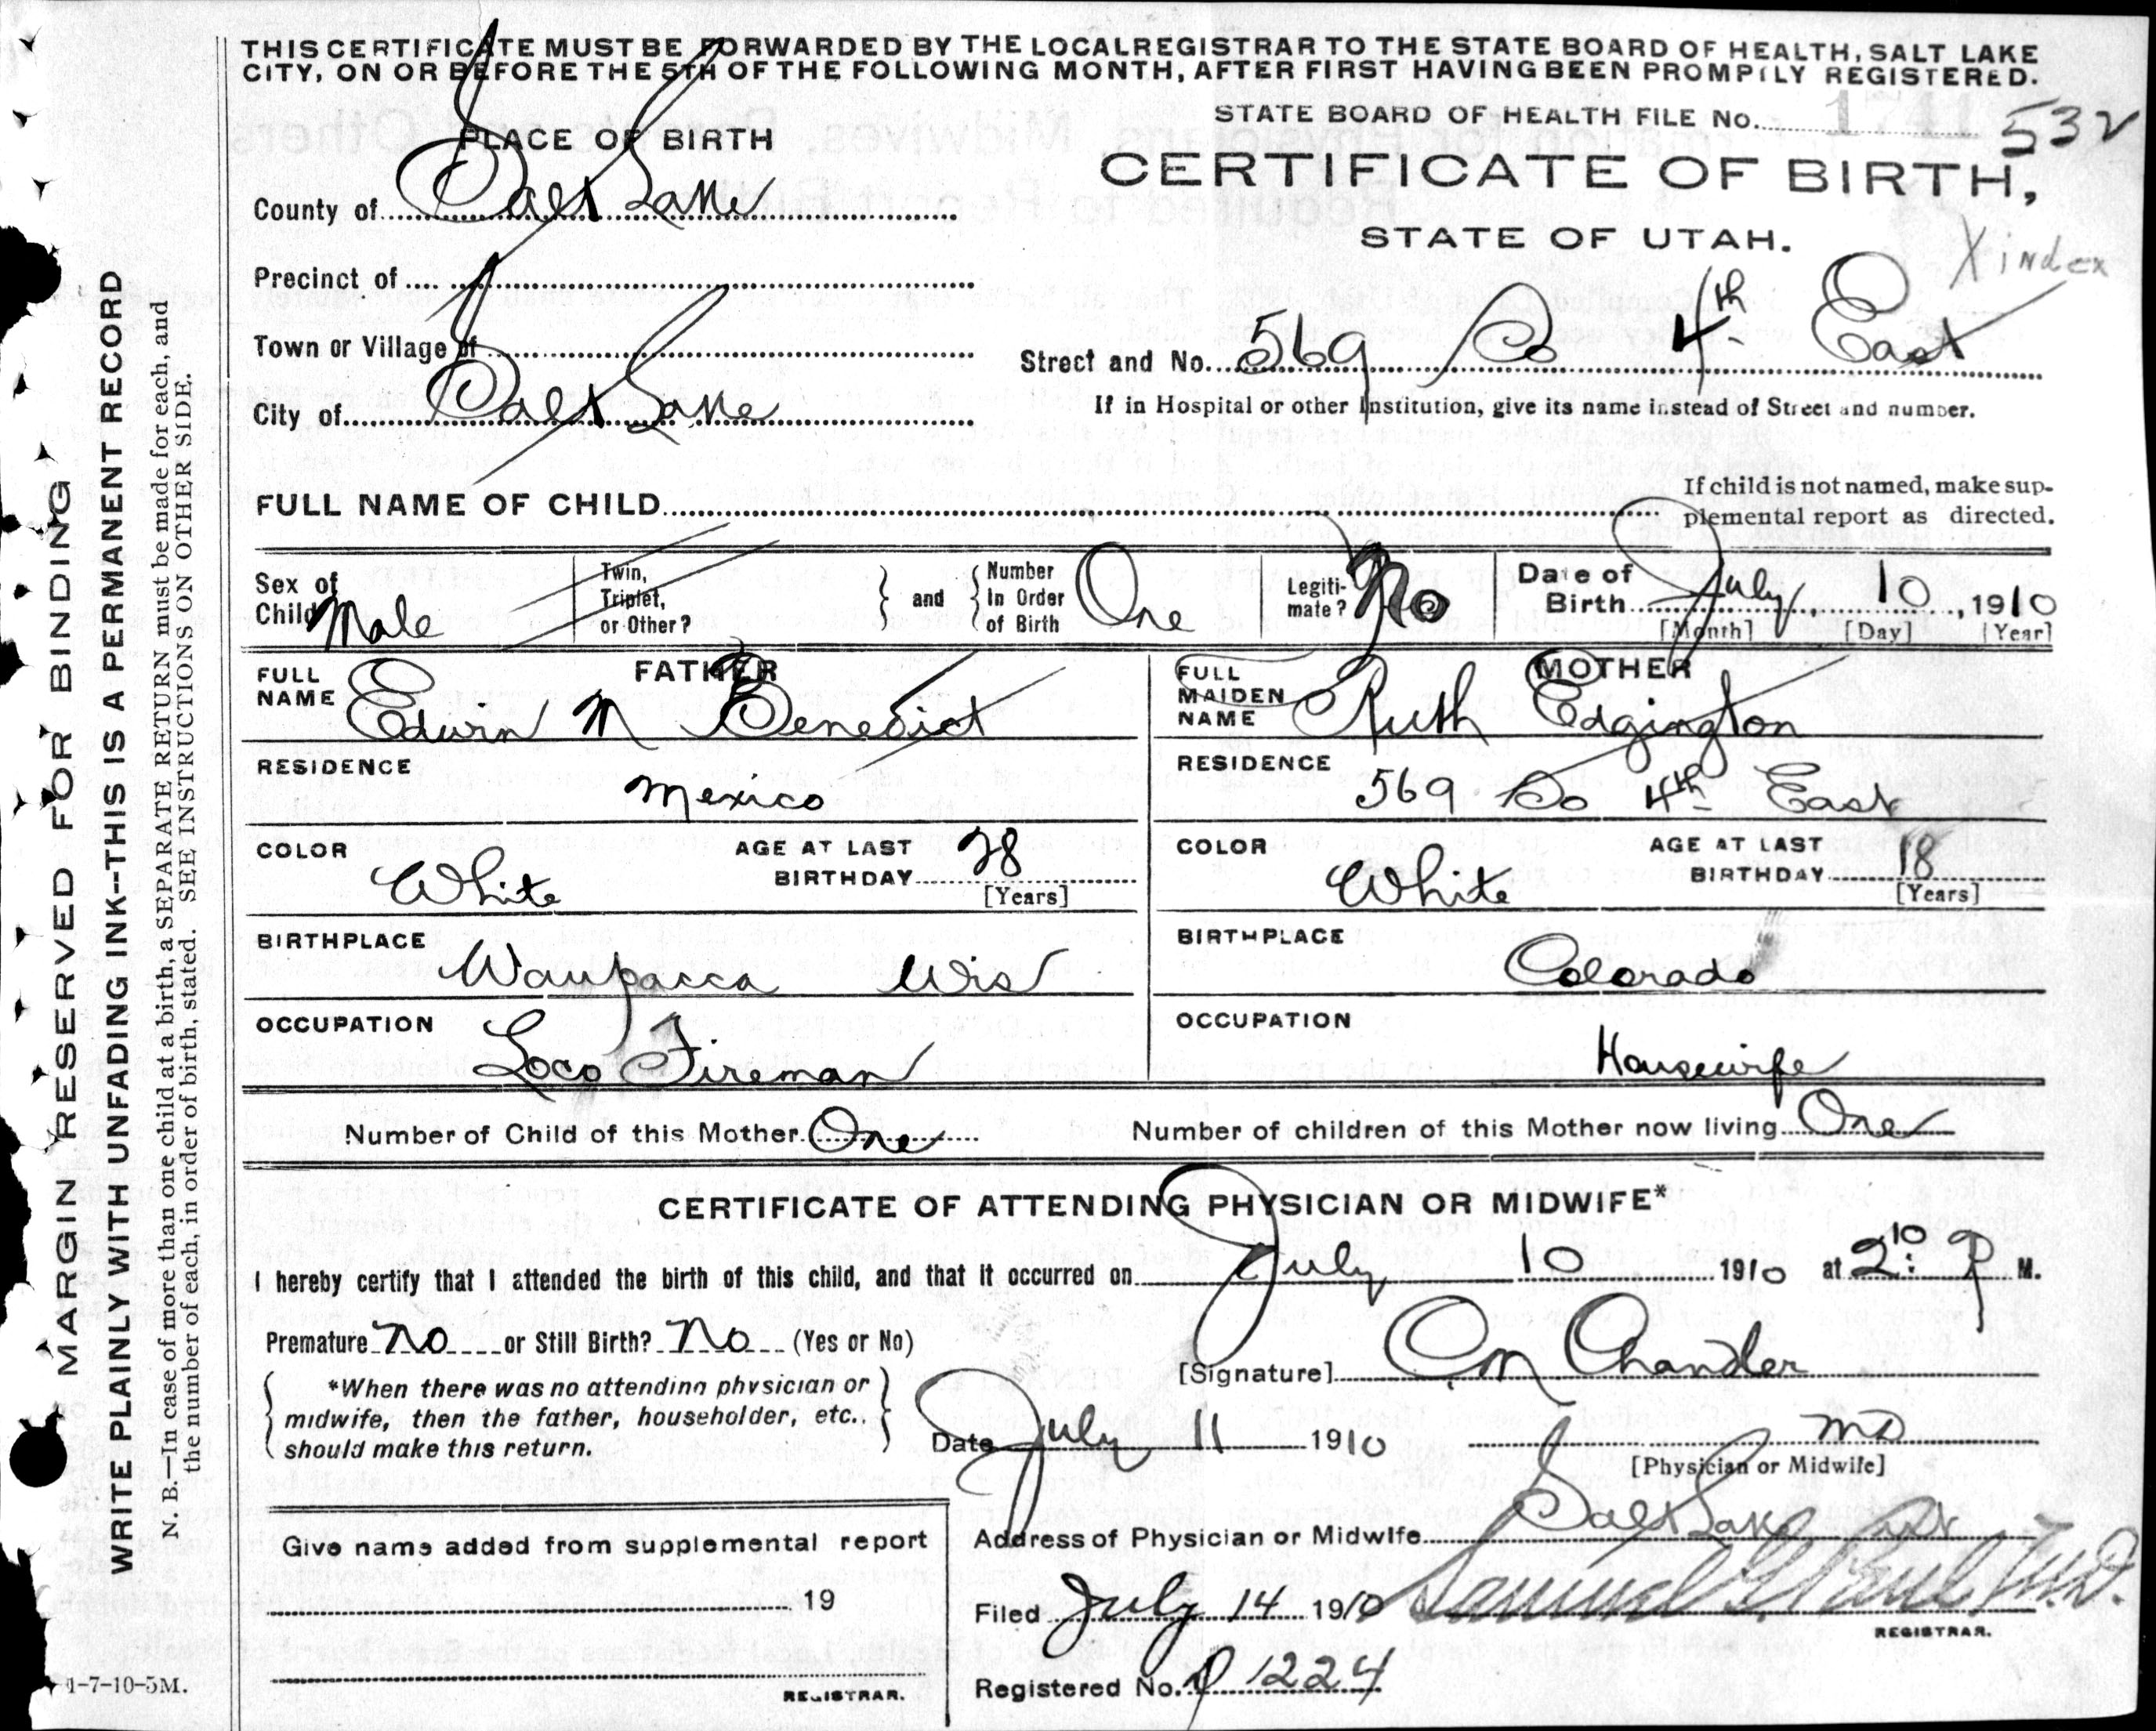 THIS CERTIFICATE MUST BE FORWARDED BY THE LOCAL REGISTRAR TO THE STATE BOARD OF HEALTH, SALT LAKE
CITY, ON OR BEFORE THE 5TH OF THE FOLLOWING MONTH, AFTER FIRST HAVING BEEN PROMPTLY REGISTERED.
STATE BOARD OF HEALTH FILE No. 532
PLACE OF BIRTH
CERTIFICATE OF BIRTH,
STATE OF UTAH.
X index
County of Salt Lake
Precinct of
Town or Village of
Street and No. 569 So 4th East
City of Salt Lake
If in Hospital or other Institution, give its name instead of Street and number.
FULL NAME OF CHILD
If child is not named, make sup-
plemental report as directed.
Sex of Child Male
Twin, Triplet, or Other?
and
Number In Order of Birth One
Legiti-mate? No
Date of Birth July 10, 1910
[Month] [Day] [Year]
FATHER
FULL NAME Edwin M Benedict
RESIDENCE
Mexico
COLOR White
AGE AT LAST BIRTHDAY 28
[Years]
BIRTHPLACE
Waupacca Wis
OCCUPATION
Loco Fireman
MOTHER
FULL MAIDEN NAME Ruth Edgington
RESIDENCE 569 So 4th East
COLOR White
AGE AT LAST BIRTHDAY 18
[Years]
BIRTHPLACE
Colorado
OCCUPATION
Housewife
Number of Child of this Mother One
Number of children of this Mother now living One
CERTIFICATE OF ATTENDING PHYSICIAN OR MIDWIFE*
I hereby certify that I attended the birth of this child, and that it occurred on July 10 1910 at 2:10 P M.
Premature No or Still Birth? No (Yes or No)
[Signature] C M Chandler
*When there was no attending physician or
midwife, then the father, householder, etc.,
should make this return.
Date July 11 1910
MD
[Physician or Midwife]
Address of Physician or Midwife Salt Lake
Give name added from supplemental report
19
REGISTRAR.
Filed July 14 1910 Samuel G. Paul, M.D.
REGISTRAR.
Registered No. 1224
MARGIN RESERVED FOR BINDING
WRITE PLAINLY WITH UNFADING INK--THIS IS A PERMANENT RECORD
N. B.—In case of more than one child at a birth, a SEPARATE RETURN must be made for each, and
the number of each, in order of birth, stated. SEE INSTRUCTIONS ON OTHER SIDE.
1-7-10-5M.